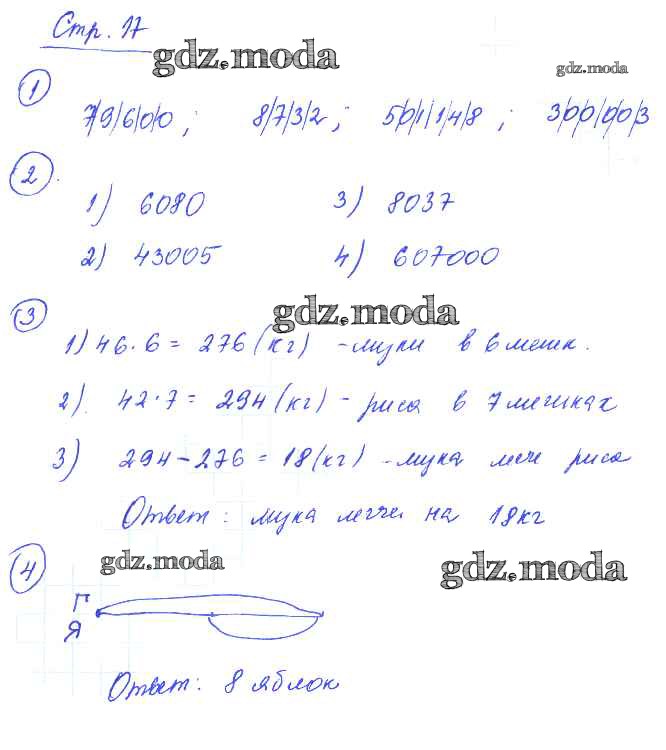 Стр. 17
gdz.moda
gdz.moda
1
7/9/6/0/0 ; 8/7/3/2 ; 5/0/1/1/4/8 ; 3/0/0/0/0/3
2
1) 6080 3) 8037
2) 43005 4) 607000
gdz.moda
3
1) 46·6 = 276 (кг) - муки в 6 мешк.
2) 42·7 = 294 (кг) - риса в 7 мешках
3) 294 - 276 = 18 (кг) - мука легче риса
Ответ: мука легче на 18 кг
4
gdz.moda
gdz.moda
Г
Я
Ответ: 8 яблок